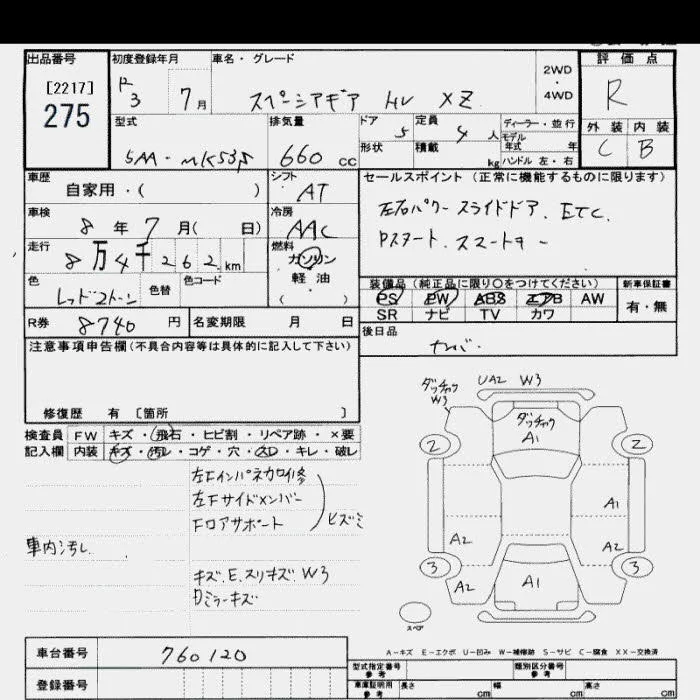 出品番号
[2217]
275
初度登録年月
R
3 7月
車名・グレード
スペーシアギア HV XZ
2WD
・
4WD
評価点
R
外装 内装
C B
型式
5AA-MK53S
排気量
660 cc
ドア 5
形状
定員 4 人
積載 kg
ディーラー・並行
モデル
年式 年
ハンドル 左・右
車歴
自家用・( )
シフト
AT
車検
8年7月( 日)
冷房
AAC
走行
8万4千262km
燃料
ガソリン
軽油
( )
色
レッド2トーン
色替
色コード
R券 8740円
名変期限 月 日
セールスポイント(正常に機能するものに限ります)
左右パワースライドドア. ETC.
Pスタート. スマートキー
装備品(純正品に限り○をつけてください)
PS PW ABS エアB AW
SR ナビ TV カワ
新車保証書
有・無
後日品
ナンバー.
注意事項申告欄(不具合内容等は具体的に記入して下さい)
修復歴 有 〔箇所 〕
検査員
記入欄
FW キズ・飛石・ヒビ割・リペア跡・×要
内装 キズ・汚レ・コゲ・穴・スレ・キレ・破レ
左Fインパネカロイ修
左Fサイドメンバー
Fロアサポート
ヒズミ
車内汚し
キズ.E.スリキズ.W3
Dミラーキズ
ダッチャク
W3
UA2 W3
ダッチャク
A1
2 2
A1
A2 A2
3 3
A2
A1
スペア
A-キズ E-エクボ U-凹み W-補修跡 S-サビ C-腐食 XX-交換済
車台番号
760120
登録番号
型式指定番号
参考
類別区分番号
参考
車庫証明用
参考
長さ cm
幅 cm
高さ cm